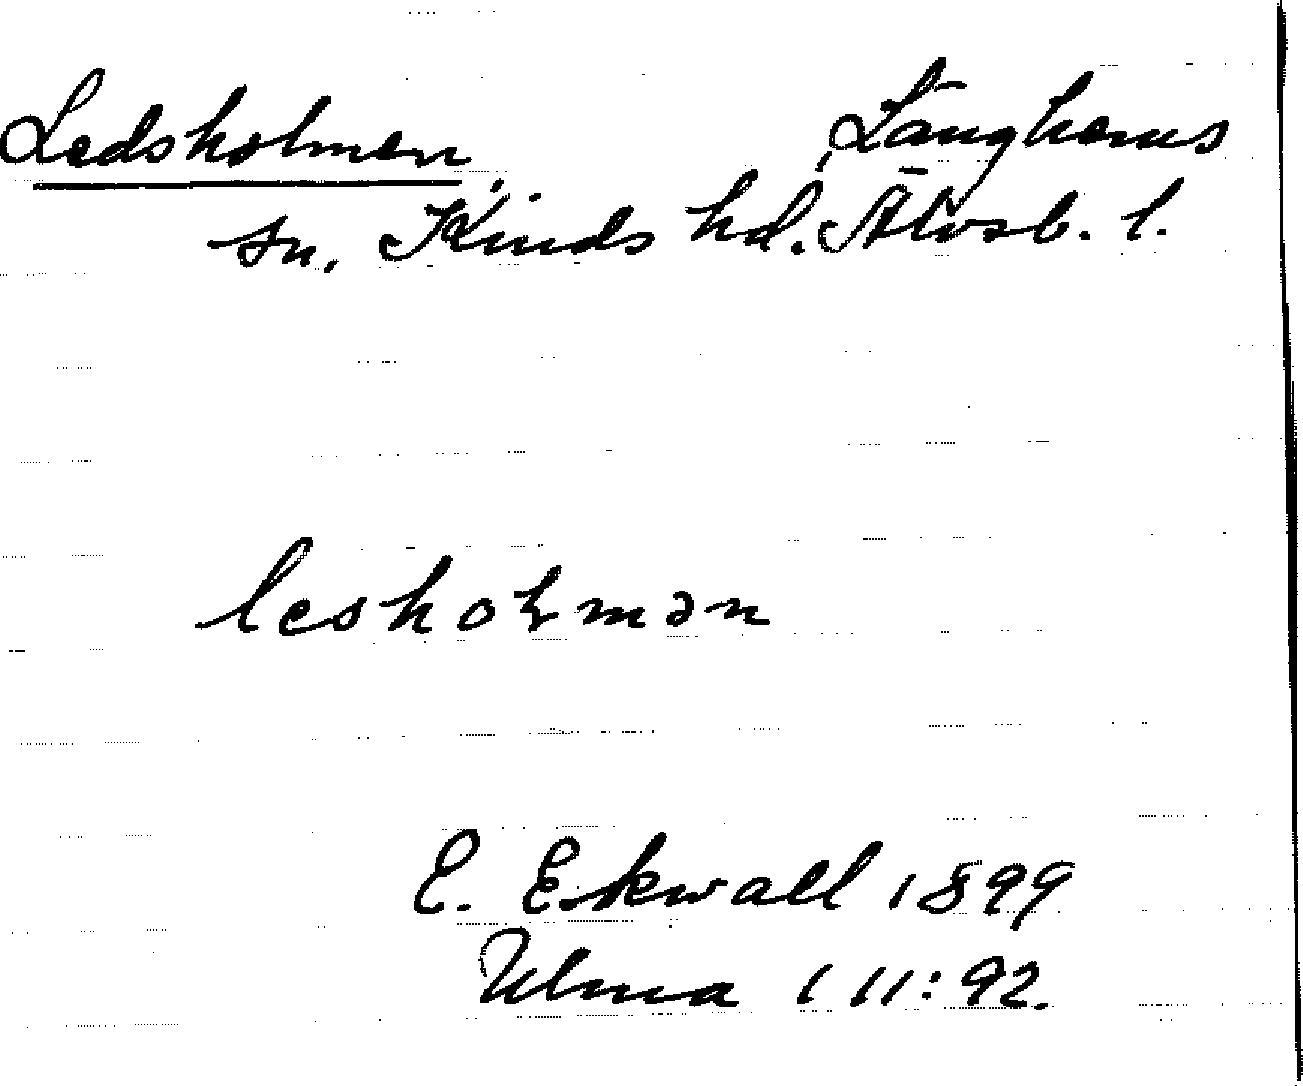 Ledsholmen, Länghems
sn. Kinds hd. Älvsb. l.
lesholmən
E. Ekwall 1899
Ulma 111:92.